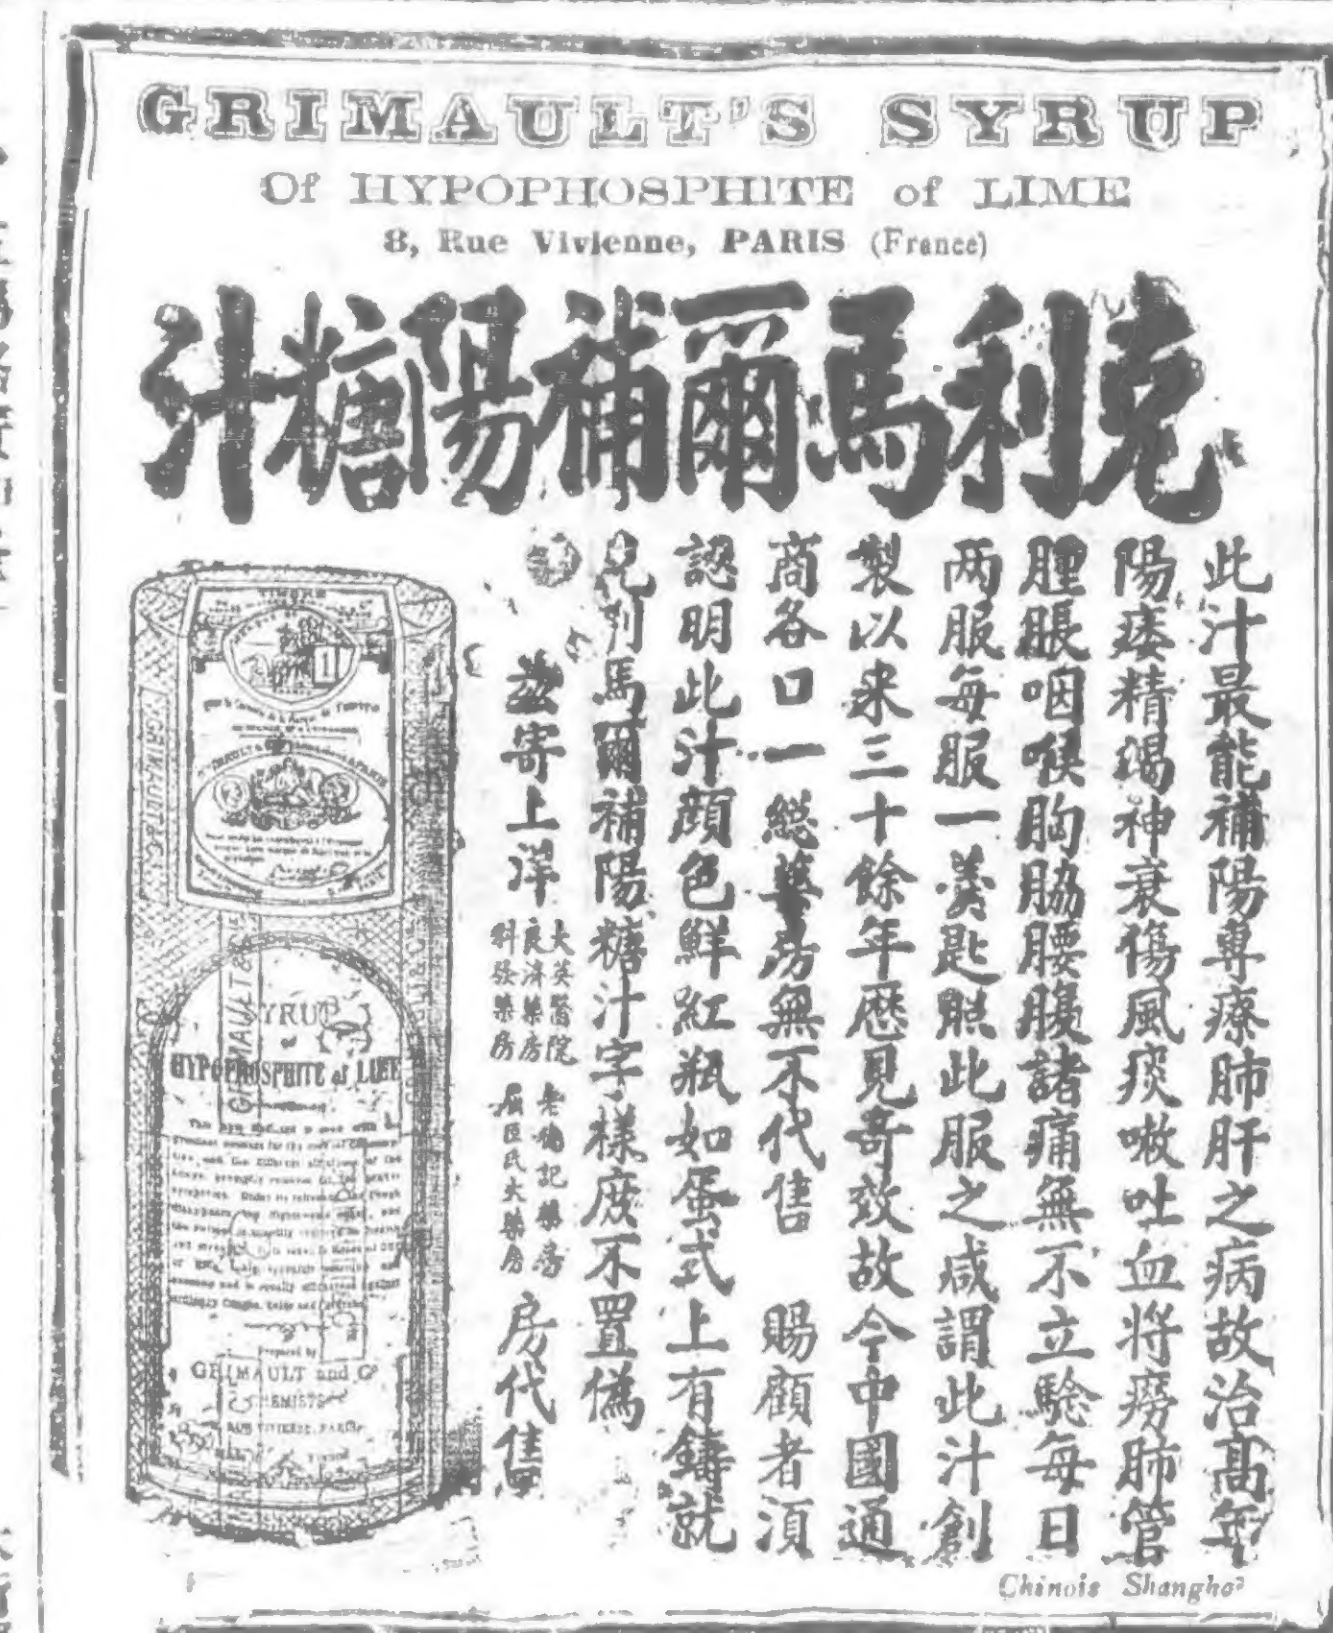 GRIMAULT'S SYRUP
Of HYPOPHOSPHITE of LIME
8, Rue Vivienne, PARIS (France)
克利馬爾補陽糖汁
此汁最能補陽專療肺肝之病故治高年
陽痿精竭神衰傷風痰嗽吐血將癆肺管
腫脹咽喉胸脇腰腹諸痛無不立驗每日
两服每服一羹匙照此服之咸謂此汁創
製以来三十餘年歷見奇效故今中國通
商各口一總藥房無不代售 賜顧者須
認明此汁顏色鮮紅瓶如蛋式上有鑄就
克利馬爾補陽糖汁字樣庻不置偽
茲寄上洋
大英醫院
良濟藥房
科發藥房
老德記藥房
屈臣氏大藥房
房代售
TIMBRE
SYRUP
of
HYPOPHOSPHITE of LIME
Prepared by
GRIMAULT and Co
CHEMISTS
GRIMAULT & Co
Chinois Shanghai